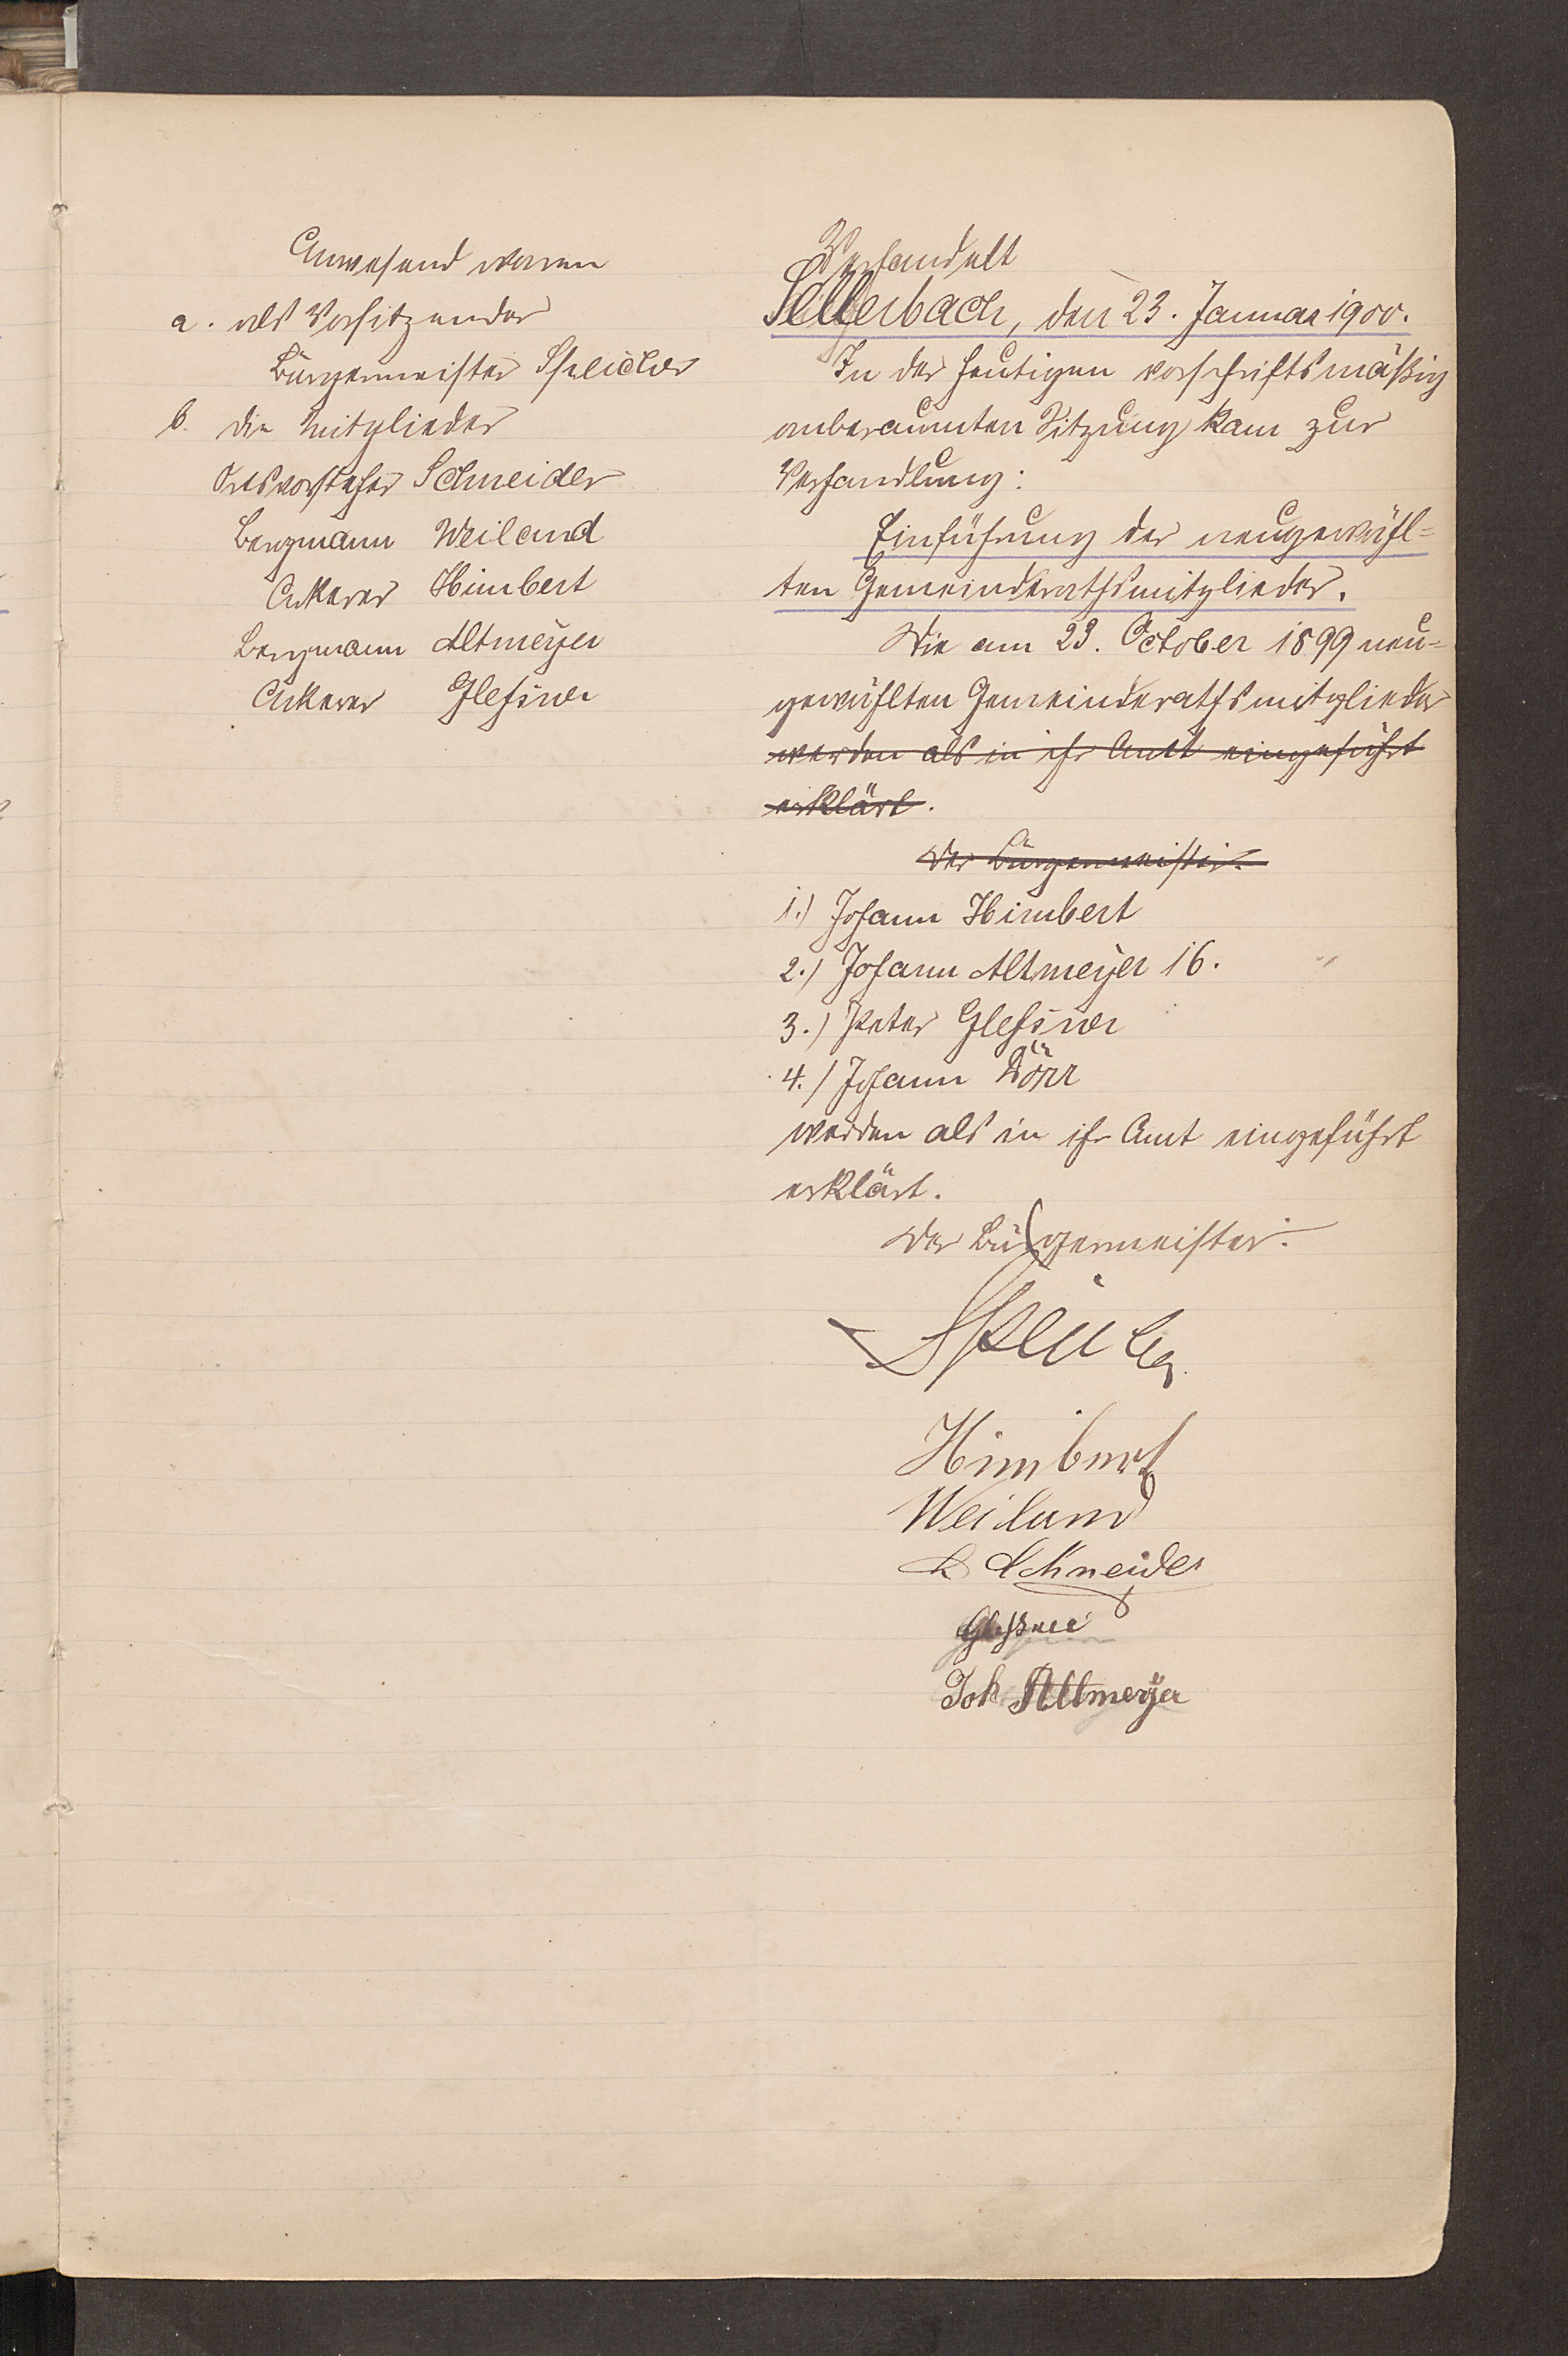 Anwesend waren
a. als Vorsitzender
Bürgermeister Speicher
b. die Mitglieder
Ortsvorsteher Schneider
Bergmann Weiland
Ackerer Himbert
Bergmann Altmeyer
Ackerer Glessner
Verhandelt
Sellerbach, den 23. Januar 1900.
In der heutigen vorschriftsmäßig
anberaumten Sitzung kam zur
Verhandlung:
Einführung der neugewähl=
ten Gemeinderathsmitglieder.
Die am 23. October 1899 neu=
gewählten Gemeinderathsmitglieder
werden als in ihr Amt eingeführt
erklärt.
Der Bürgermeister.
1.) Johann Himbert
2.) Johann Altmeyer 16.
3.) Peter Glessner
4.) Johann Dörr
werden als in ihr Amt eingeführt
erklärt.
Der Bürgermeister.
Speicher
Himbert
Weiland
Schneider
Glessner
Joh Altmeyer